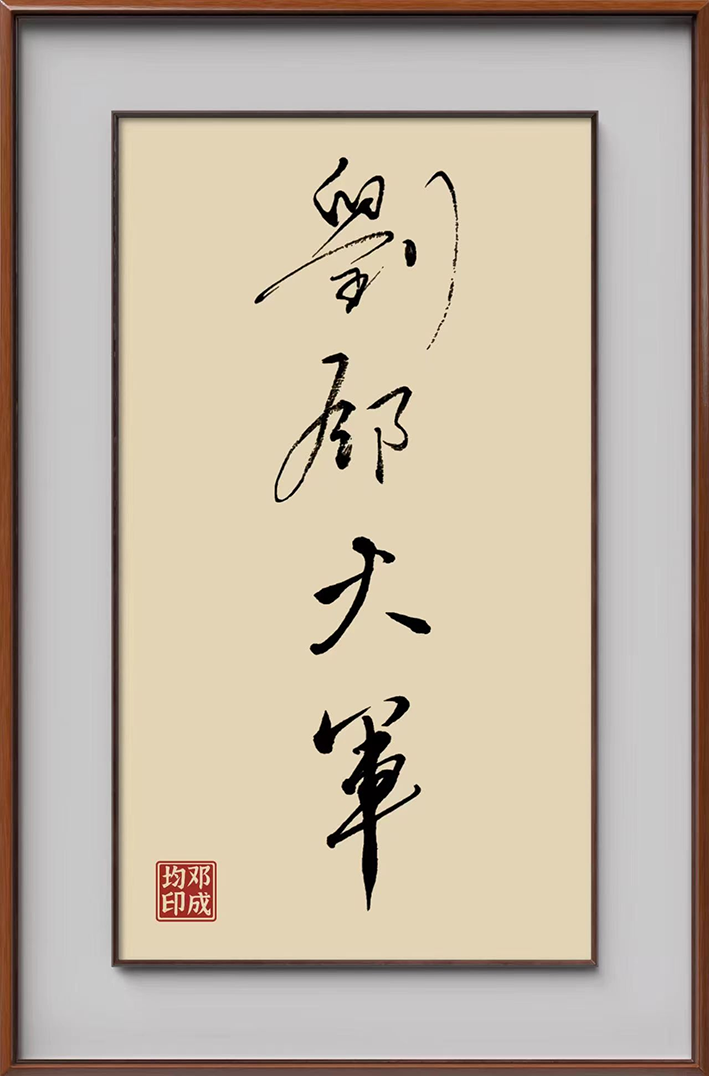 劉鄧大軍
邓成均印